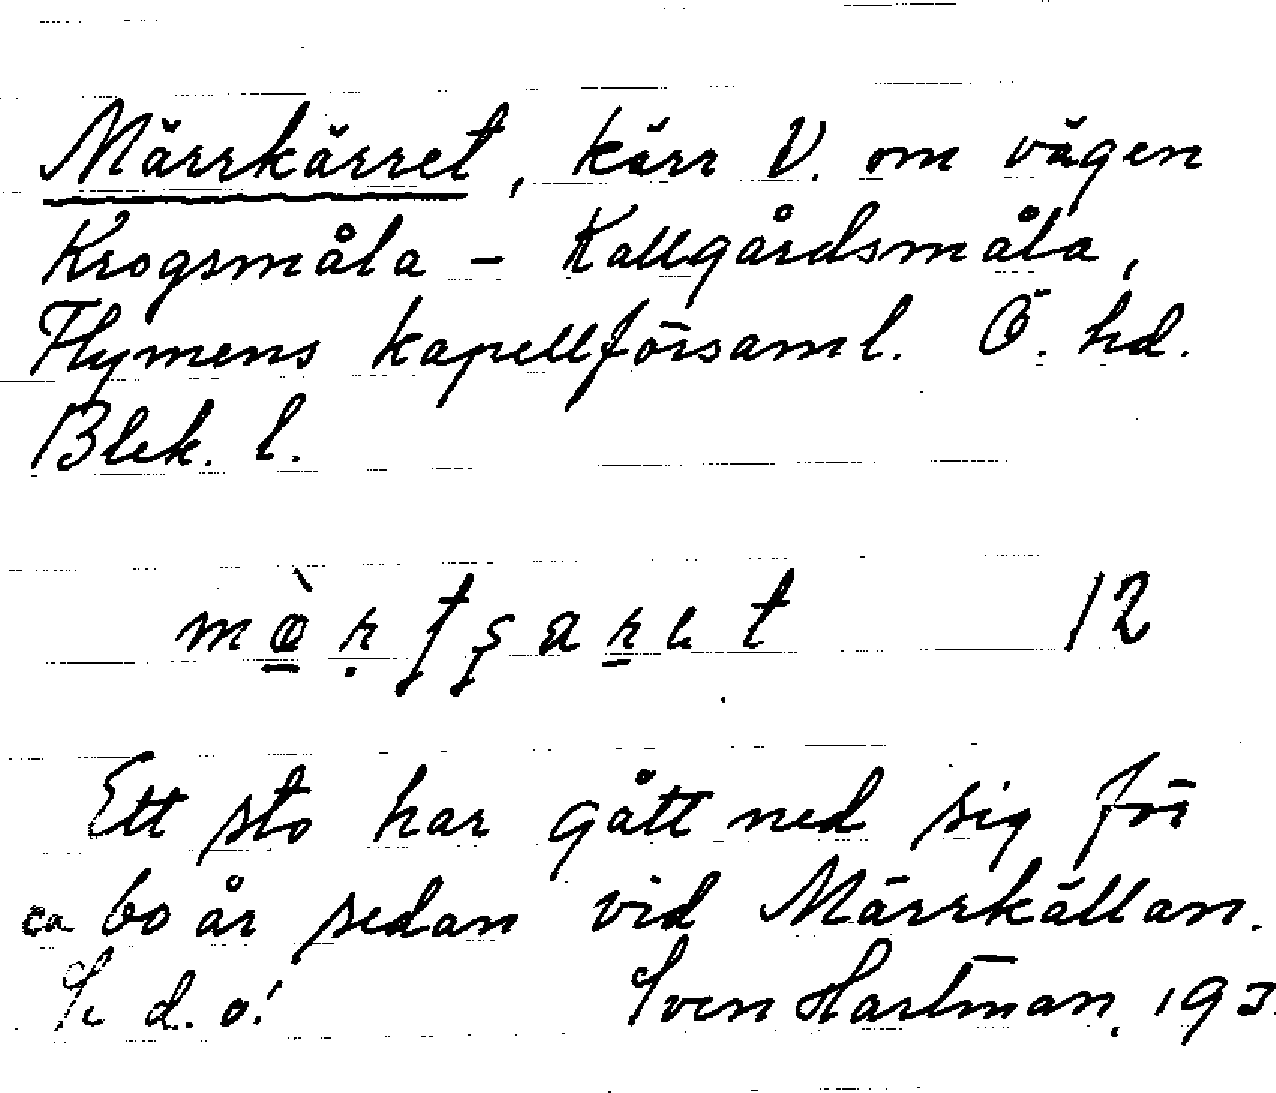 Märrkärret, kärr V. om vägen
Krogsmåla - Kallgårdsmåla,
Flymens kapellförsaml. Ö. hd.
Blek. l.
12
Ett sto har gått ned sig för
ca 60 år sedan vid Märrkällan.
Se d.o!
Sven Hartman, 193